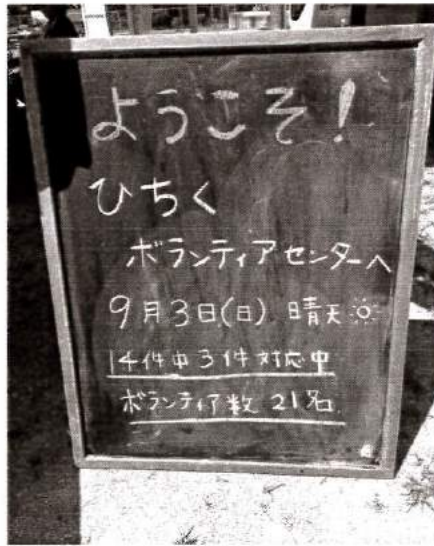 ようこそ!
ひちく
ボランティアセンターへ
9月3日(日) 晴天
14件中3件対応中
ボランティア数 21名